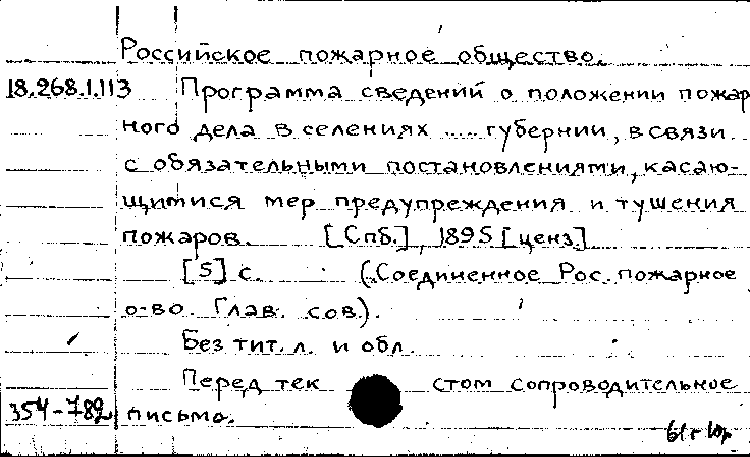 Российское пожарное общество.
18.268.1.113 Программа сведений о положении пожар
ного дела в селениях .... губернии, в связи
с обязательными постановлениями, касаю-
щимися мер предупреждения и тушения
пожаров. [Спб.], 1895 [ценз]
[5] с. (Соединенное Рос. пожарное
о-во. Глав. сов.).
Без тит. л. и обл.
Перед тек стом сопроводительное
354-782 письмо.